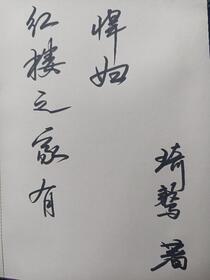 红楼之家有
悍妇
琦鹜 著